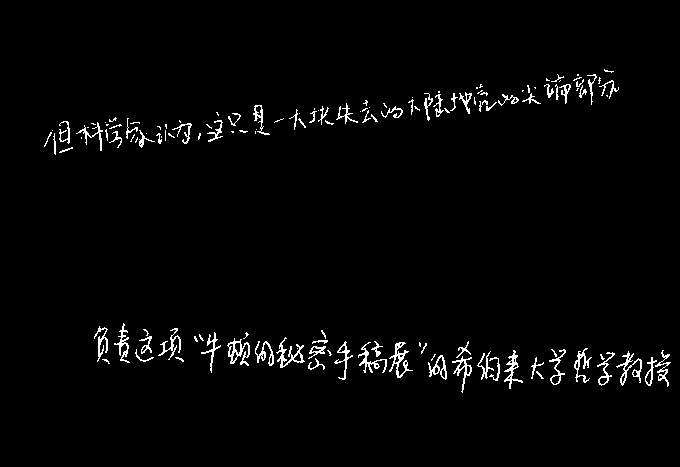 但科学家认为,这只是一大块失去的大陆地壳的尖端部分
负责这项“牛顿的秘密手稿展”的希伯来大学哲学教授